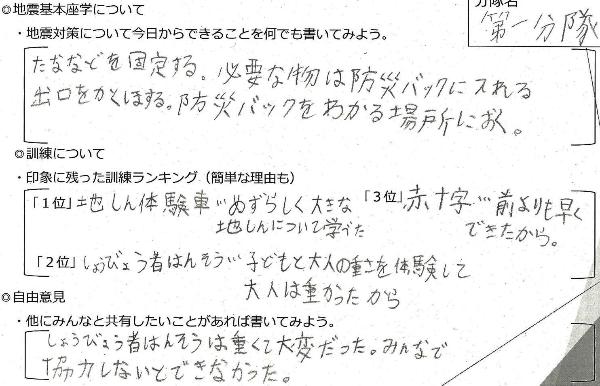 ◎地震基本座学について
分隊名
第一分隊
・地震対策について今日からできることを何でも書いてみよう。
たななどを固定する。必要な物は防災バックに入れる
出口をかくほする。防災バックをわかる場所におく。
◎訓練について
・印象に残った訓練ランキング（簡単な理由も）
「1位」地しん体験車…めずらしく大きな
地しんについて学べた
「3位」赤十字…前よりも早く
できたから。
「2位」しょうびょう者はんそう…子どもと大人の重さを体験して
大人は重かったから
◎自由意見
・他にみんなと共有したいことがあれば書いてみよう。
しょうびょう者はんそうは重くて大変だった。みんなで
協力しないとできなかった。